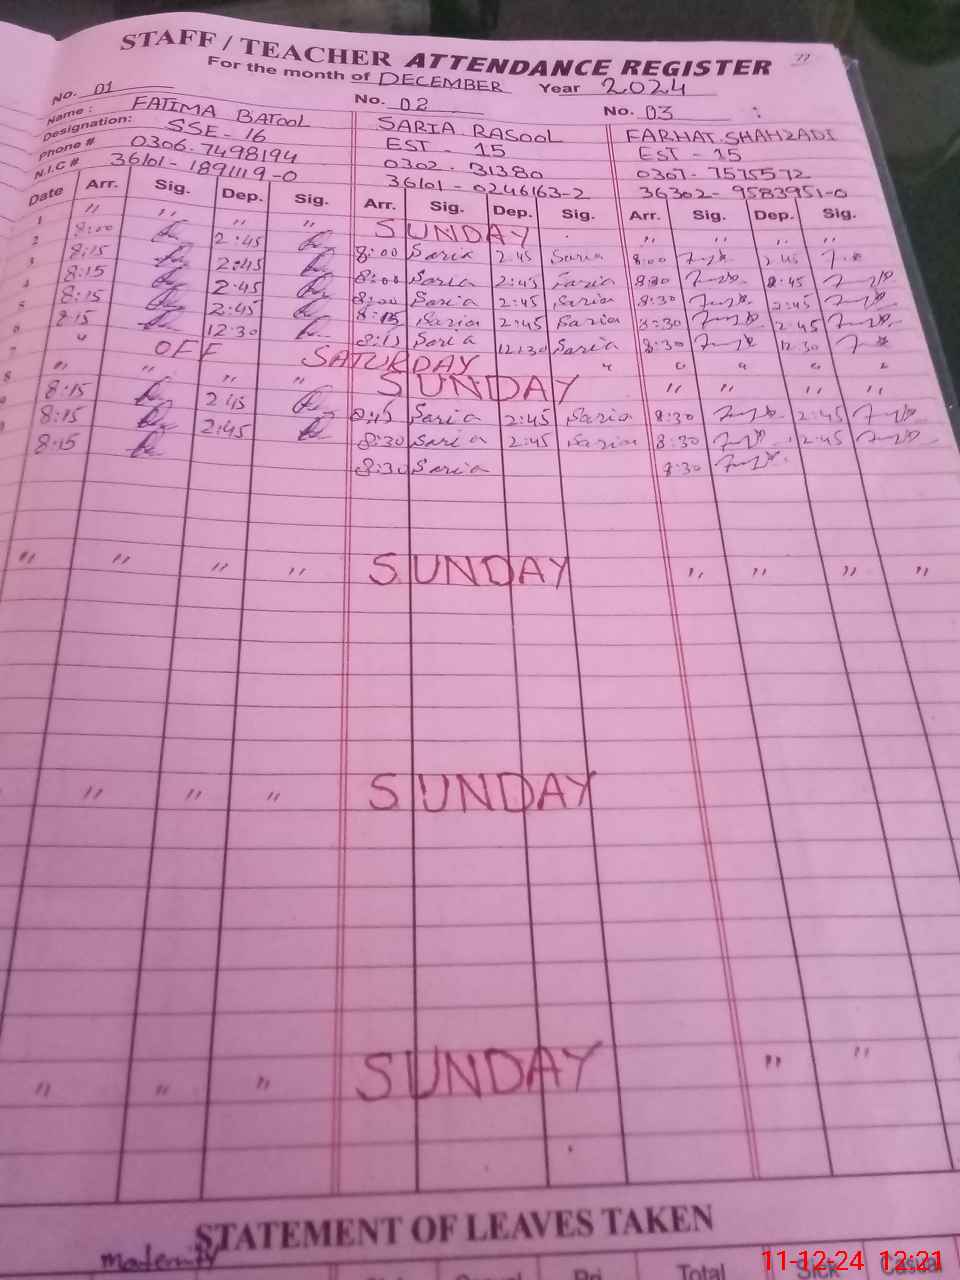 77
STAFF / TEACHER ATTENDANCE REGISTER
For the month of DECEMBER Year 2024
No. 01 No. 02 No. 03 :
Name : FATIMA BATOOL SARIA RASOOL FARHAT SHAHZADI
Designation: SSE - 16 EST - 15 EST - 15
Phone # 0306-7498194 0302-31380 0307-7575572
N.I.C # 36101-1891119-0 36101-0246163-2 36302-9583951-0
Date Arr. Sig. Dep. Sig. Arr. Sig. Dep. Sig. Arr. Sig. Dep. Sig.
1 " " " " SUNDAY " " " "
2 8:00 2:45 8:00 Saria 2:45 Saria 8:00 2:45
3 8:15 2:45 8:00 Saria 2:45 Saria 8:30 2:45
4 8:15 2:45 8:00 Saria 2:45 Saria 8:30 2:45
5 8:15 2:45 8:15 Saria 2:45 Saria 8:30 2:45
6 8:15 12:30 8:15 Saria 12:30 Saria 8:30 12:30
7 " OFF SATURDAY " " " " "
8 " " " " SUNDAY " " " "
9 8:15 2:45 Saria 2:45 Saria 8:30 2:45
8:15 2:45 8:30 Saria 2:45 Saria 8:30 2:45
8:15 8:30 Saria 8:30
" " " " SUNDAY " " " "
" " " SUNDAY
" " " SUNDAY " "
STATEMENT OF LEAVES TAKEN
maternity
Total Sick Casual
11-12-24 12:21